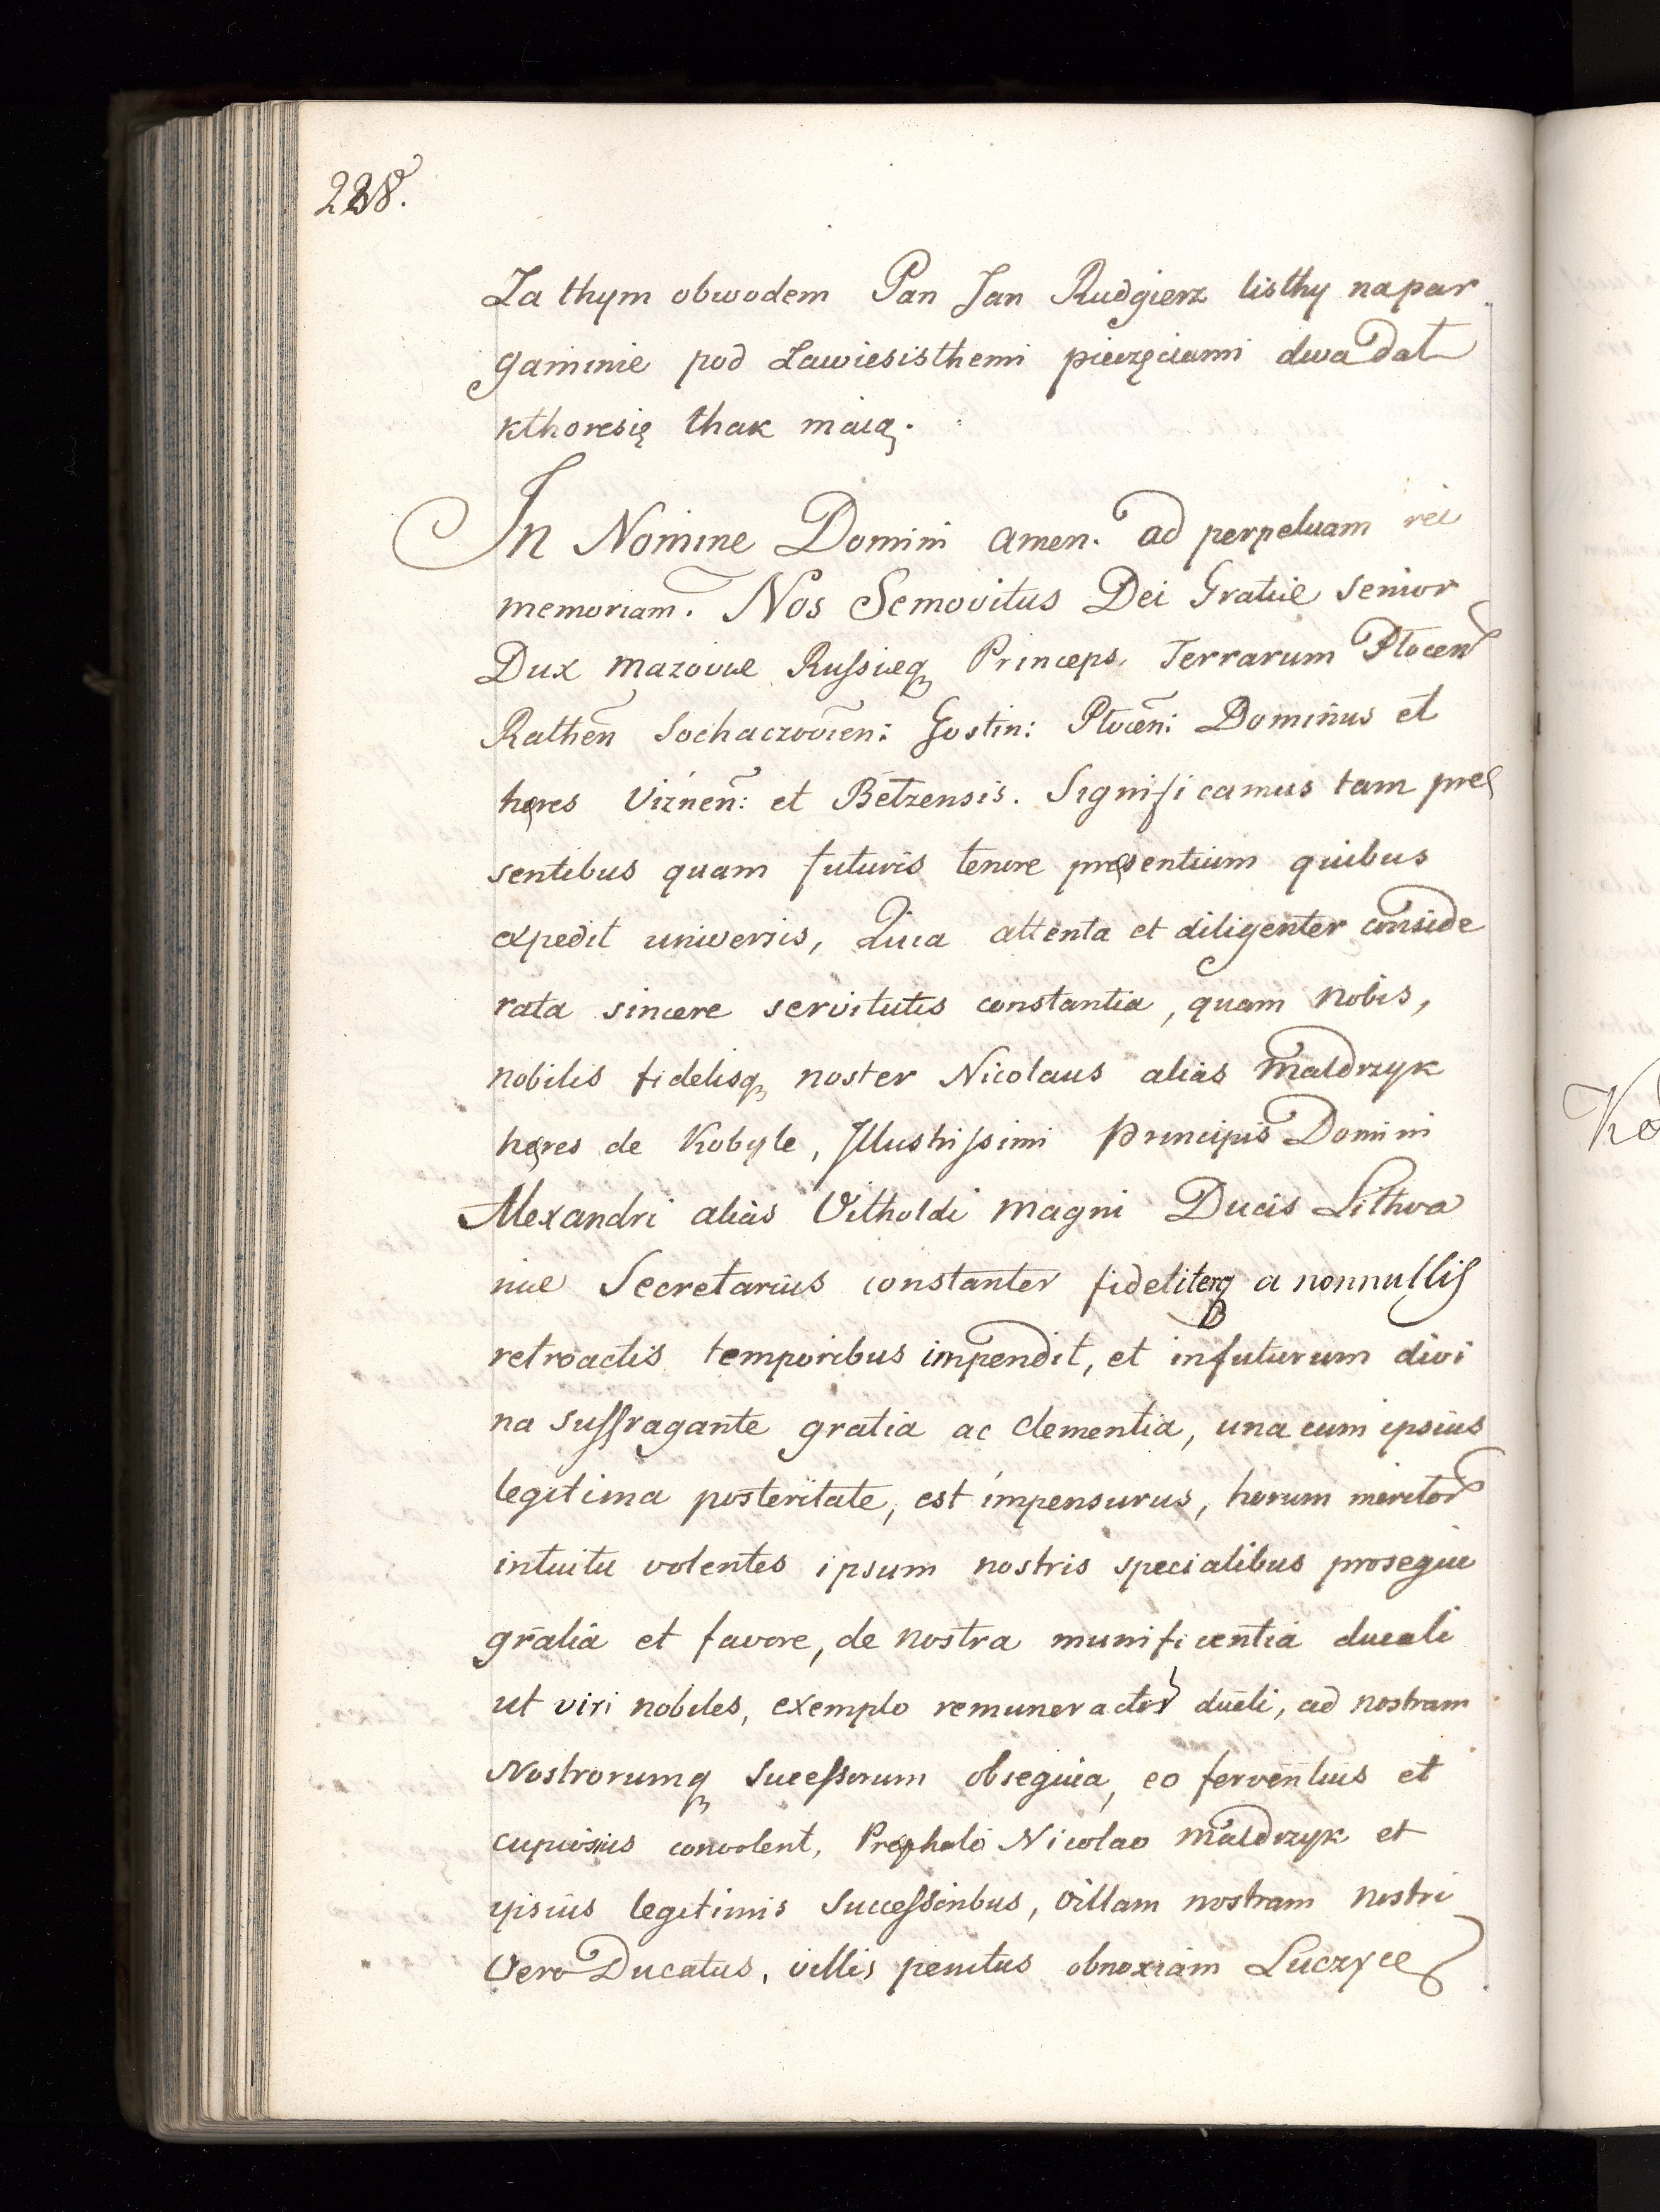 228.
Za thym obwodem Pan Jan Rudgierz listhy na par
gaminie pod Zawiesisthemi pieczęciami dwa dał
kthoresię thak maią.
In Nomine Domini amen. ad perpetuam rei
memoriam. Nos Semovitus Dei Gratiæ Senior
Dux Mazoviæ Russieq Princeps, Terrarum Płocen
Rathen̄ Sochaczovien̄: Gostin: Płocen̄: Dominus et
hęres Viznen̄: et Bełzensis. Significamus tam præ
sentibus quam futuris tenore pręsentium quibus
expedit universis, Quia attenta et diligenter conside
rata sincere servitutis constantia, quam nobis,
nobilis fidelisq noster Nicolaus alias Maldrzyk
hęres de Kobyle, Illustrissimi Principis Domini
Alexandri alias Vitholdi Magni Ducis Lithva
niæ Secretarius constanter fideliterq a nonnullis
retroactis temporibus impendit, et infuturum divi
na suffragante gratia ac clementia, una cum ipsius
legitima posteritate, est impensurus, horum meritor
intuitu volentes ipsum nostris specialibus prosequi
gratia et favore, de nostra munificentia ducali
ut viri nobiles, exemplo remunerator ducti, ad nostram
Nostrorumq Sucessorum obsequia, eo ferventius et
cupiosius convolent, Pręphato Nicolao Maldrzyk et
ipsius legitimis Successoribus, villam nostram nostri
Vero Ducatus, villis penitus obnoxiam Luczyce
Ko